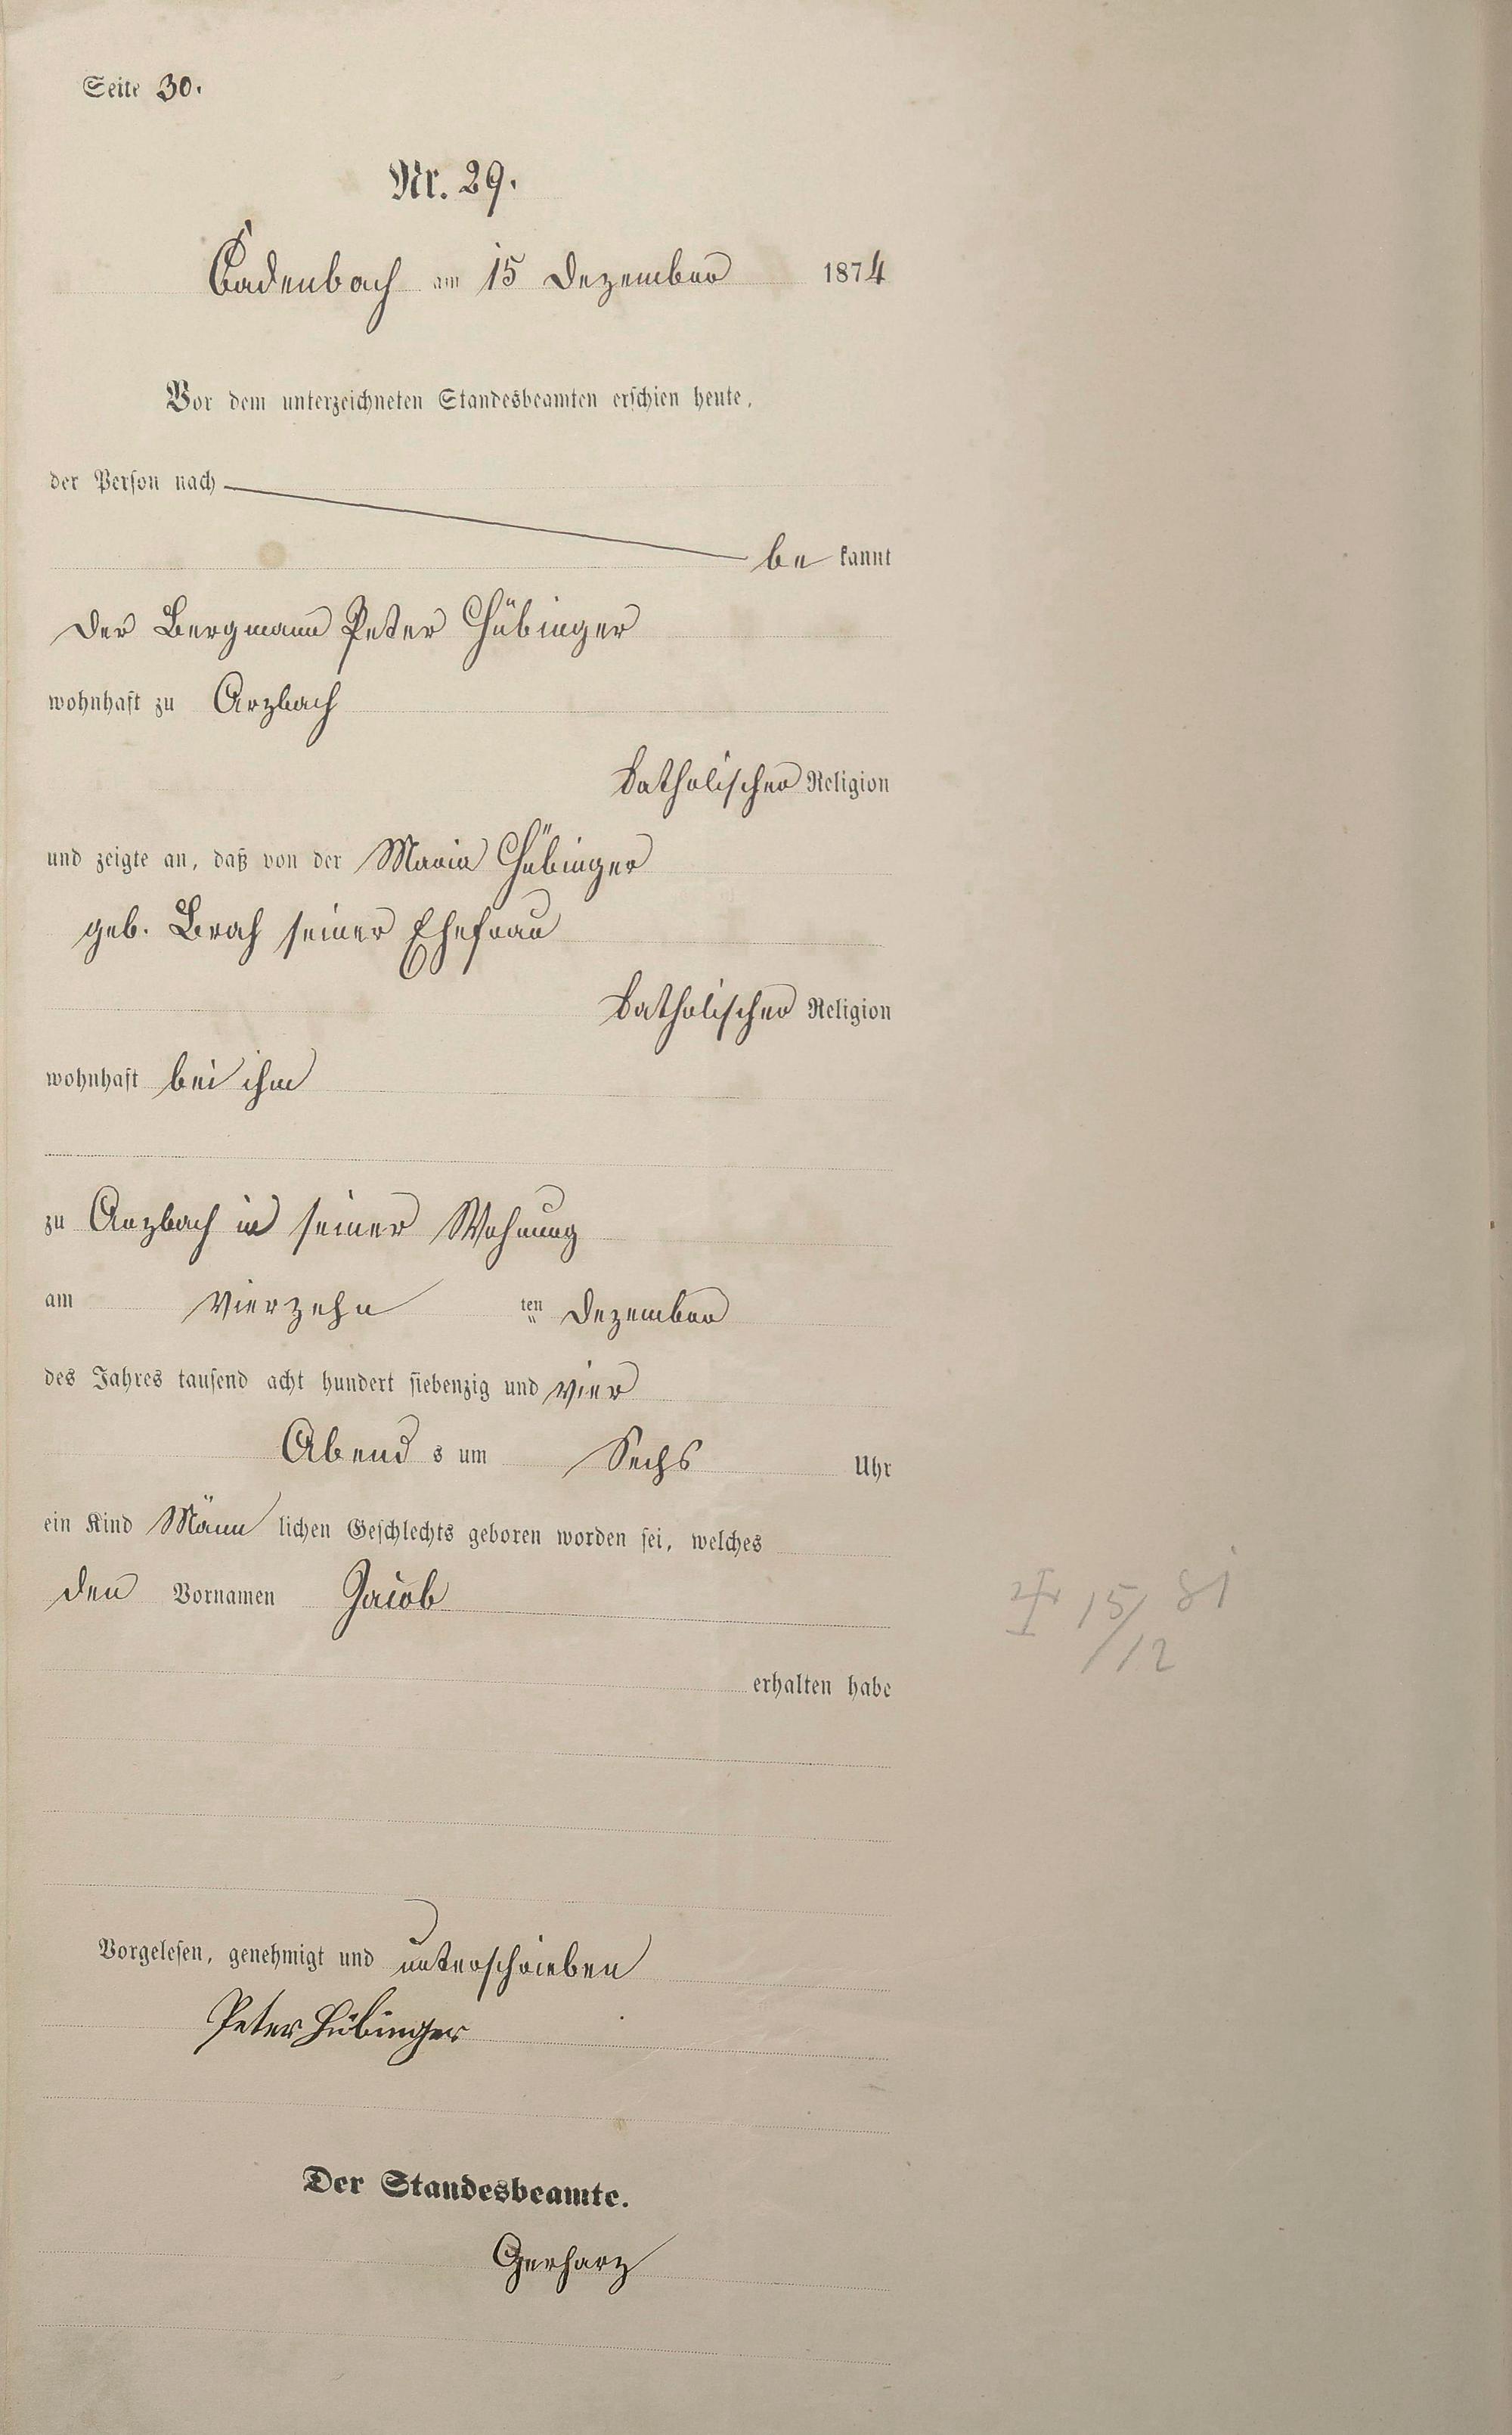 Seite 30.
Nr. 29.
Cadenbach am 15 Dezember 1874
Vor dem unterzeichneten Standesbeamten erschien heute,
der Person nach
be kannt
der Bergmann Peter Hübinger
wohnhaft zu Arzbach
katholischer Religion
und zeigte an, daß von der Maria Hübinger
geb. Brah seiner Ehefrau
katholischer Religion
wohnhaft bei ihm
zu Arzbach in seiner Wohnung
am vierzehn ten Dezember
des Jahres tausend acht hundert siebenzig und vier
Abend s um Sechs Uhr
ein Kind Männ lichen Geschlechts geboren worden sei, welches
den Vornamen Jacob
15/12 81
erhalten habe
Vorgelesen, genehmigt und unterschrieben
Peter Hübinger
Der Standesbeamte.
Gerharz